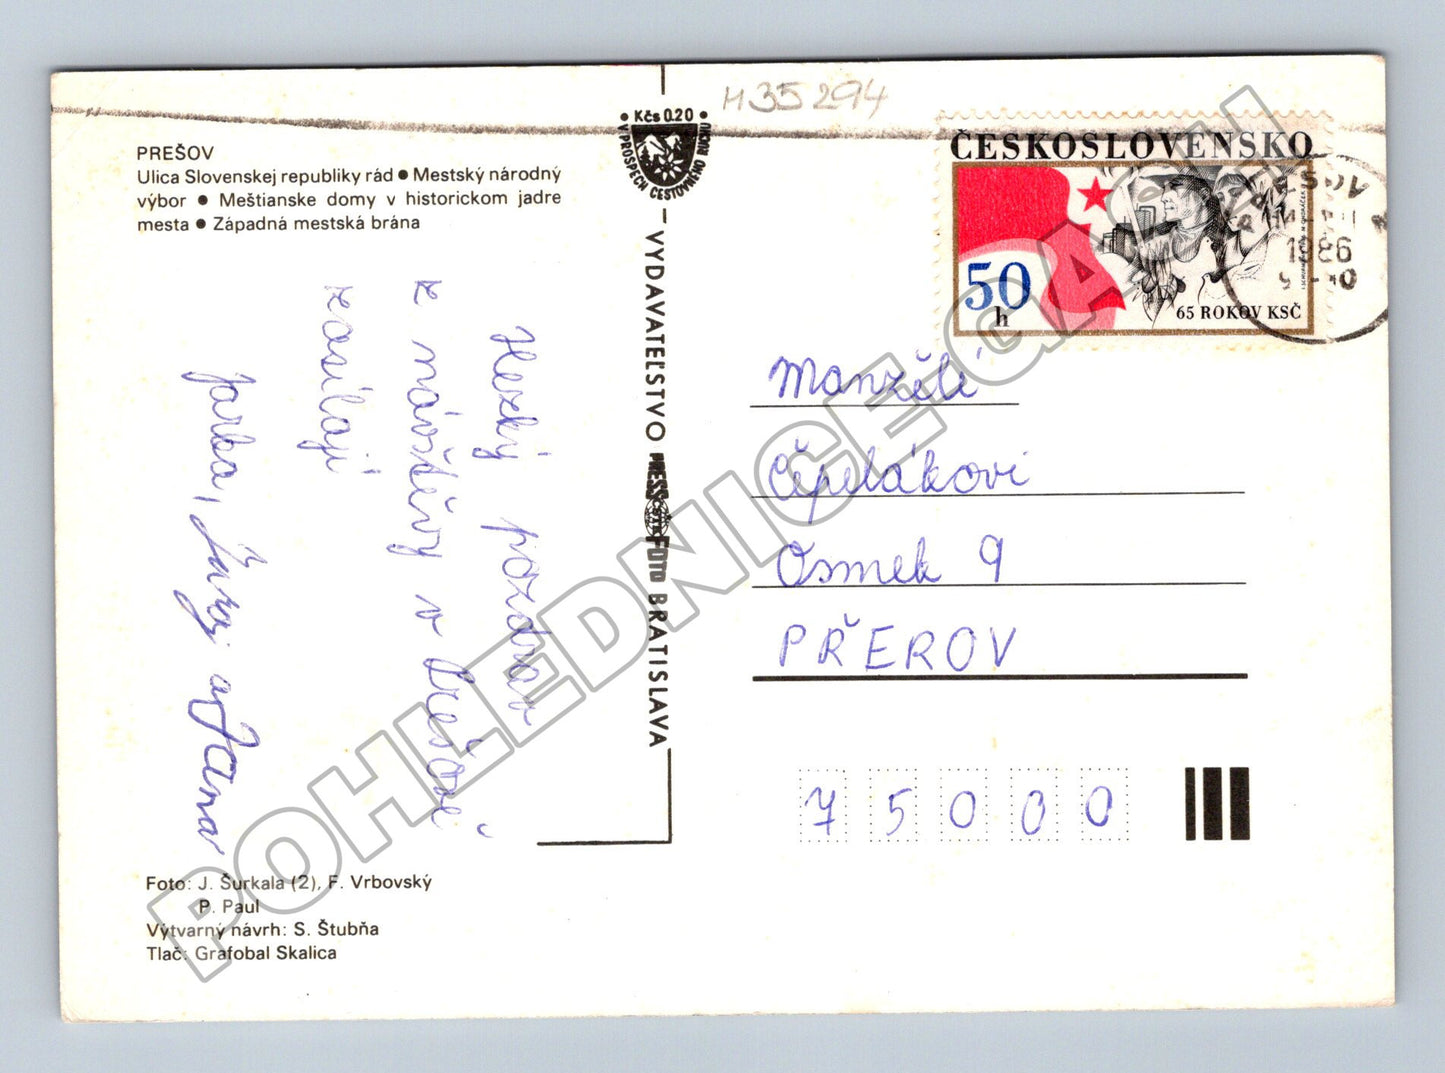 H35294
PREŠOV
Ulica Slovenskej republiky rád ● Mestský národný
výbor ● Meštianske domy v historickom jadre
mesta ● Západná mestská brána
Hezký pozdrav
z návštěvy v Prešově
zasílají
Jarka, Juraj a Jana
Foto: J. Šurkala (2), F. Vrbovský
P. Paul
Výtvarný návrh: S. Štubňa
Tlač: Grafobal Skalica
• Kčs 0.20 •
V PROSPECH CESTOVNÉHO RUCHU
VYDAVATEĽSTVO PRESSFOTO BRATISLAVA
ČESKOSLOVENSKO
50 h
65 ROKOV KSČ
1986
Manželé
Čepelákovi
Osmek 9
PŘEROV
75000
POHLEDNICE-GALASH